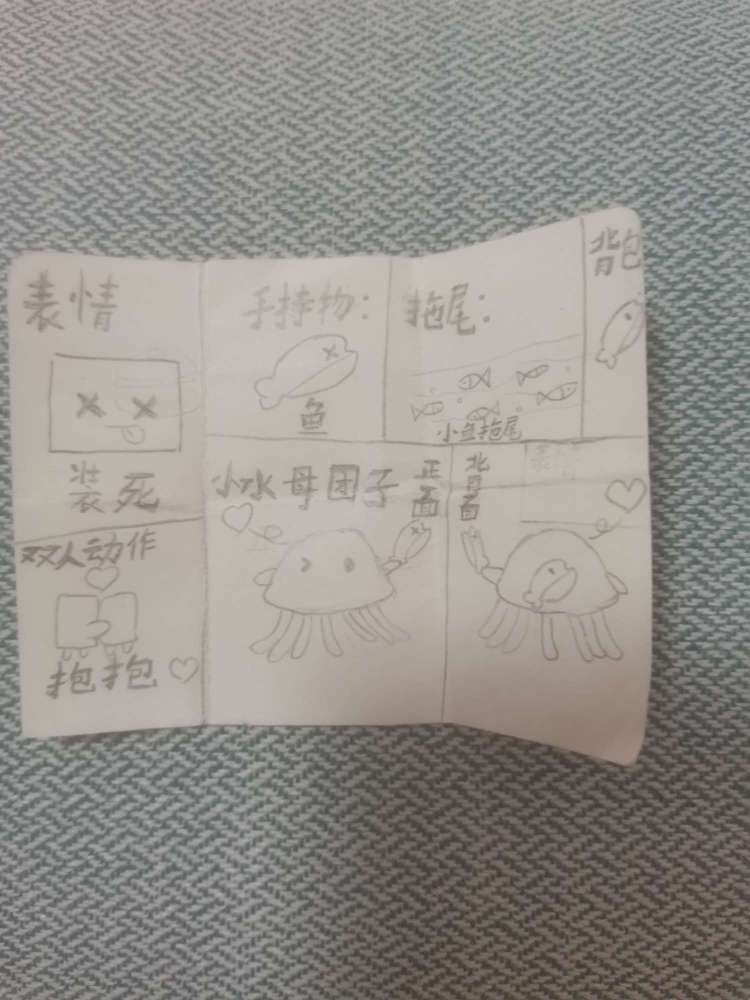 表情
装死
手持物：
鱼
拖尾：
小鱼拖尾
背包
双人动作
抱抱
小水母团子
正面
背面